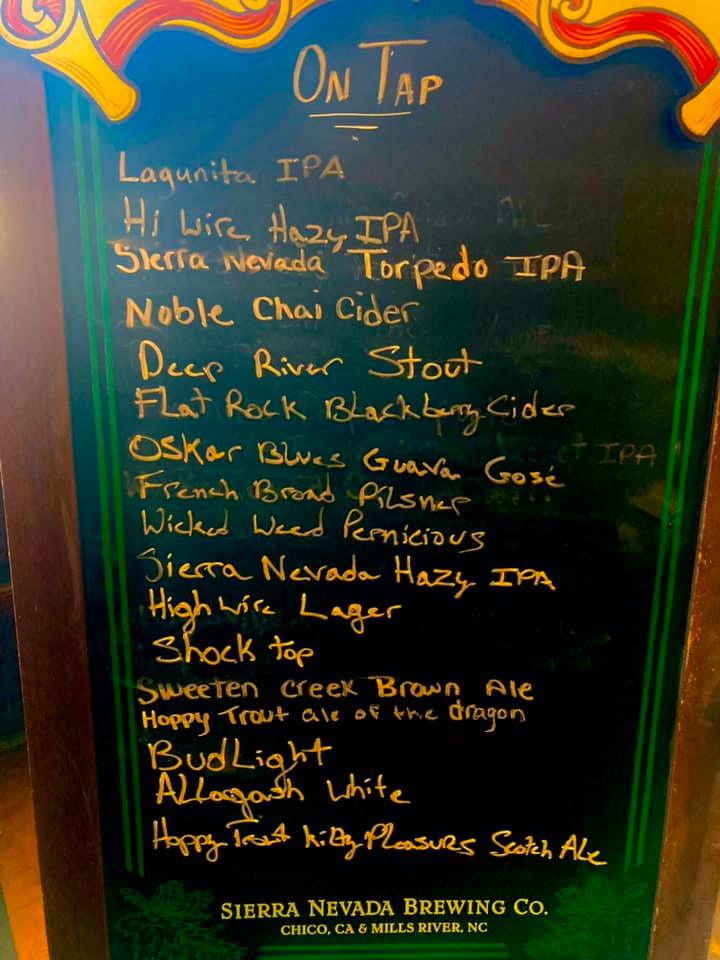 On Tap
Lagunita IPA
Hi Wire Hazy IPA
Sierra Nevada Torpedo IPA
Noble Chai Cider
Deep River Stout
Flat Rock Blackberry Cider
Oskar Blues Guava Gosé
IPA
French Broad Pilsner
Wicked Weed Pernicious
Sierra Nevada Hazy IPA
High Wire Lager
Shock top
Sweeten Creek Brown Ale
Hoppy Trout ale of the dragon
Bud Light
Allagash White
Hoppy Trout Pleasurs Scotch Ale
SIERRA NEVADA BREWING CO.
CHICO, CA & MILLS RIVER, NC